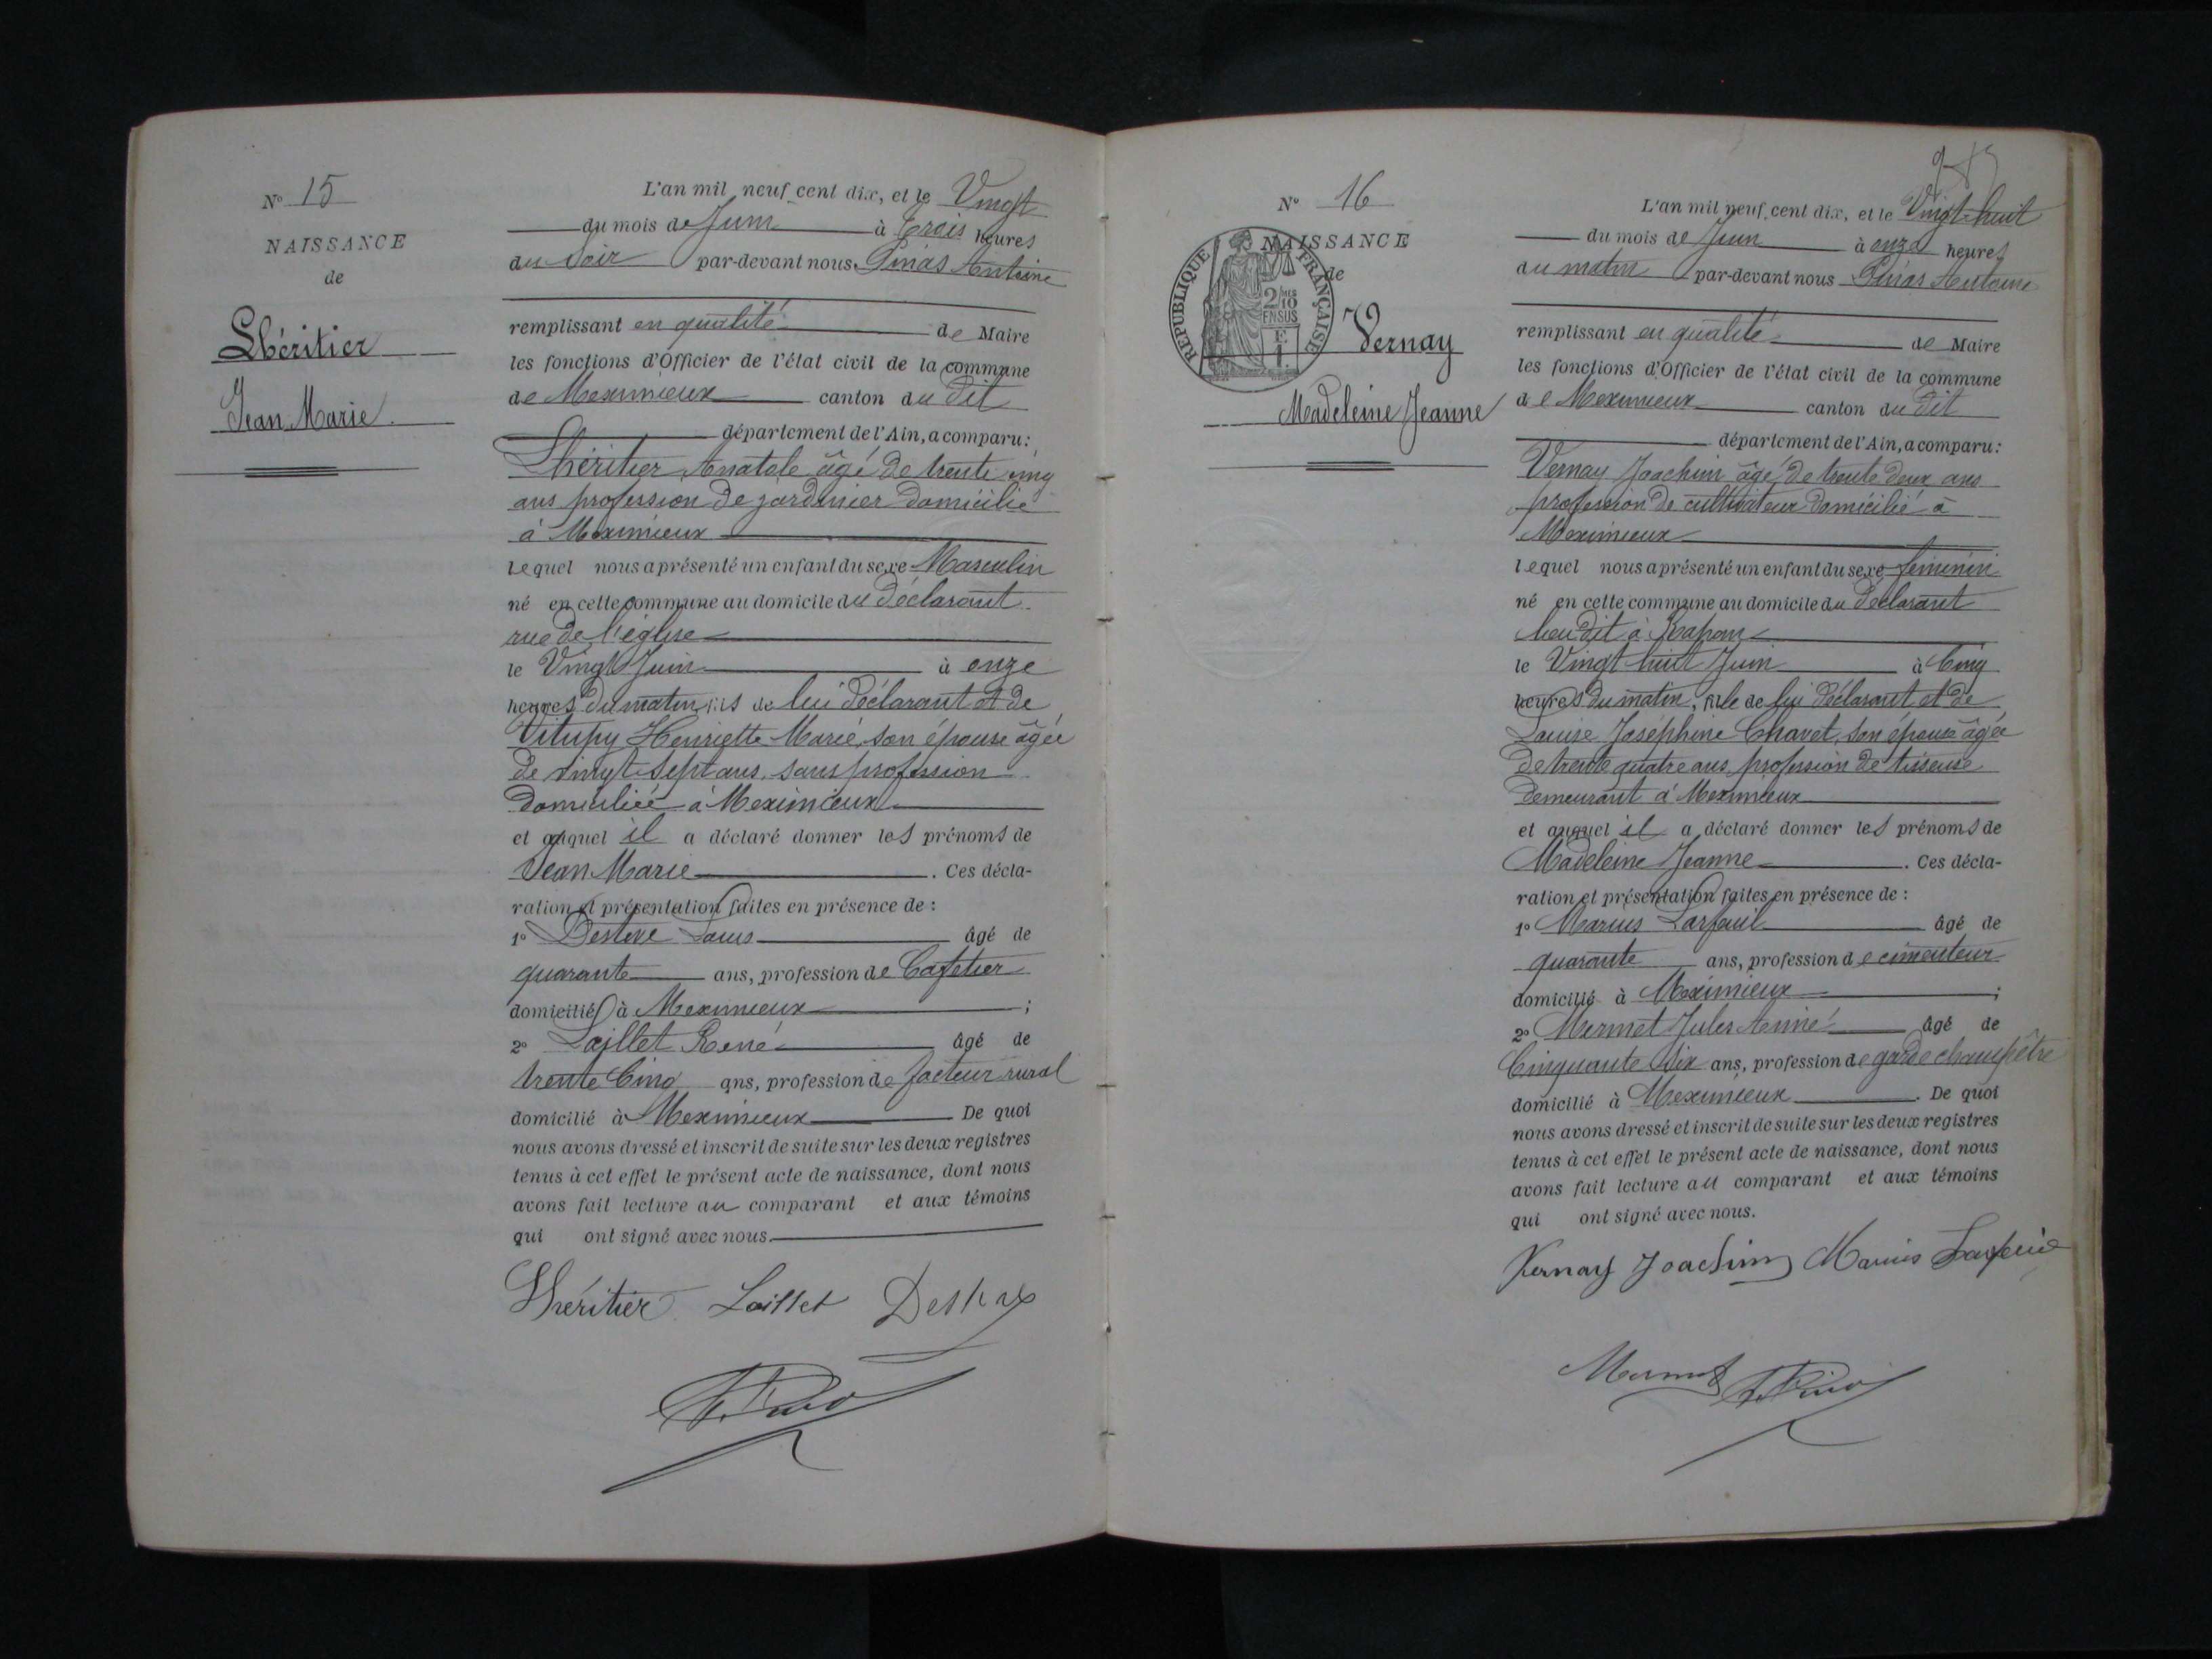 N° 15
NAISSANCE
de
Lhéritier
Jean Marie
L'an mil neuf cent dix, et le Vingt
du mois de Juin à trois heures
du Soir par-devant nous Pinás Antoine
remplissant en qualité de Maire
les fonctions d'Officier de l'état civil de la commune
de Meximieux canton du dit
département de l'Ain, a comparu:
Lhéritier Anatole âgé de trente cinq
ans profession de jardinier domicilié
à Meximieux
lequel nous a présenté un enfant du sexe Masculin
né en cette commune au domicile du déclarant
rue de l'église
le Vingt Juin à onze
heures du matin, fils de lui déclarant et de
Vitupy Henriette Marie, son épouse âgée
de vingt sept ans, sans profession
domiciliée à Meximieux
et auquel il a déclaré donner les prénoms de
Jean Marie. Ces décla-
ration et présentation faites en présence de :
1° Louis âgé de
quarante ans, profession de Cafetier
domicilié à Meximieux ;
2° Laillet René âgé de
trente Cinq ans, profession de facteur rural
domicilié à Meximieux De quoi
nous avons dressé et inscrit de suite sur les deux registres
tenus à cet effet le présent acte de naissance, dont nous
avons fait lecture au comparant et aux témoins
qui ont signé avec nous.
Lhéritier Laillet
N° 16
NAISSANCE
de
REPUBLIQUE FRANÇAISE
2/10 MES
EN SUS
Vernay
Madeleine Jeanne
L'an mil neuf cent dix, et le Vingt-huit
du mois de Juin à onze heures
du matin par-devant nous Pinás Antoine
remplissant en qualité de Maire
les fonctions d'Officier de l'état civil de la commune
de Meximieux canton du dit
département de l'Ain, a comparu:
Vernay Joachim âgé de trente deux ans
profession de cultivateur domicilié à
Meximieux
lequel nous a présenté un enfant du sexe féminin
né en cette commune au domicile du déclarant
lieu dit à
le Vingt huit Juin à Cinq
heures du matin, fille de lui déclarant et de
Louise Joséphine Chavet, son épouse âgée
de trente quatre ans profession de tisseuse
demeurant à Meximieux
et auquel il a déclaré donner les prénoms de
Madeleine Jeanne. Ces décla-
ration et présentation faites en présence de :
1° Marius âgé de
quarante ans, profession de cimenteur
domicilié à Meximieux ;
2° Mermet Jules Aimé âgé de
Cinquante Six ans, profession de garde champêtre
domicilié à Meximieux. De quoi
nous avons dressé et inscrit de suite sur les deux registres
tenus à cet effet le présent acte de naissance, dont nous
avons fait lecture au comparant et aux témoins
qui ont signé avec nous.
Vernay Joachim Marius
Mermet